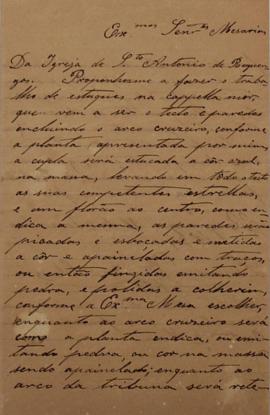 Ex.mos Senr.es Mesarios
Da Igreja de S.to Antonio de Reguen-
gos. Proponhome a fazer o traba-
lho de estuques na Cappella mór,
quem vem a ser o tecto e paredes
encluindo o arco cruzeiro, conforme
a planta apresentada por mim,
a cupla será estucada a côr azul,
na massa, levando em todo o tecto
as suas competentes estrellas,
e um florão ao centro, como en-
dica a mesma, as paredes serão
picadas e esbocadas e metidas
a côr e apaineladas com traços,
ou então fingidas emitando
pedra, e polidas a colherim,
conforme a Ex.ma Mesa escolher,
enquanto ao arco cruzeiro será
como a planta endica, ou emi-
tando pedra, ou côr na massa
sendo apainelado; enquanto ao
arco da tribuna será rete-